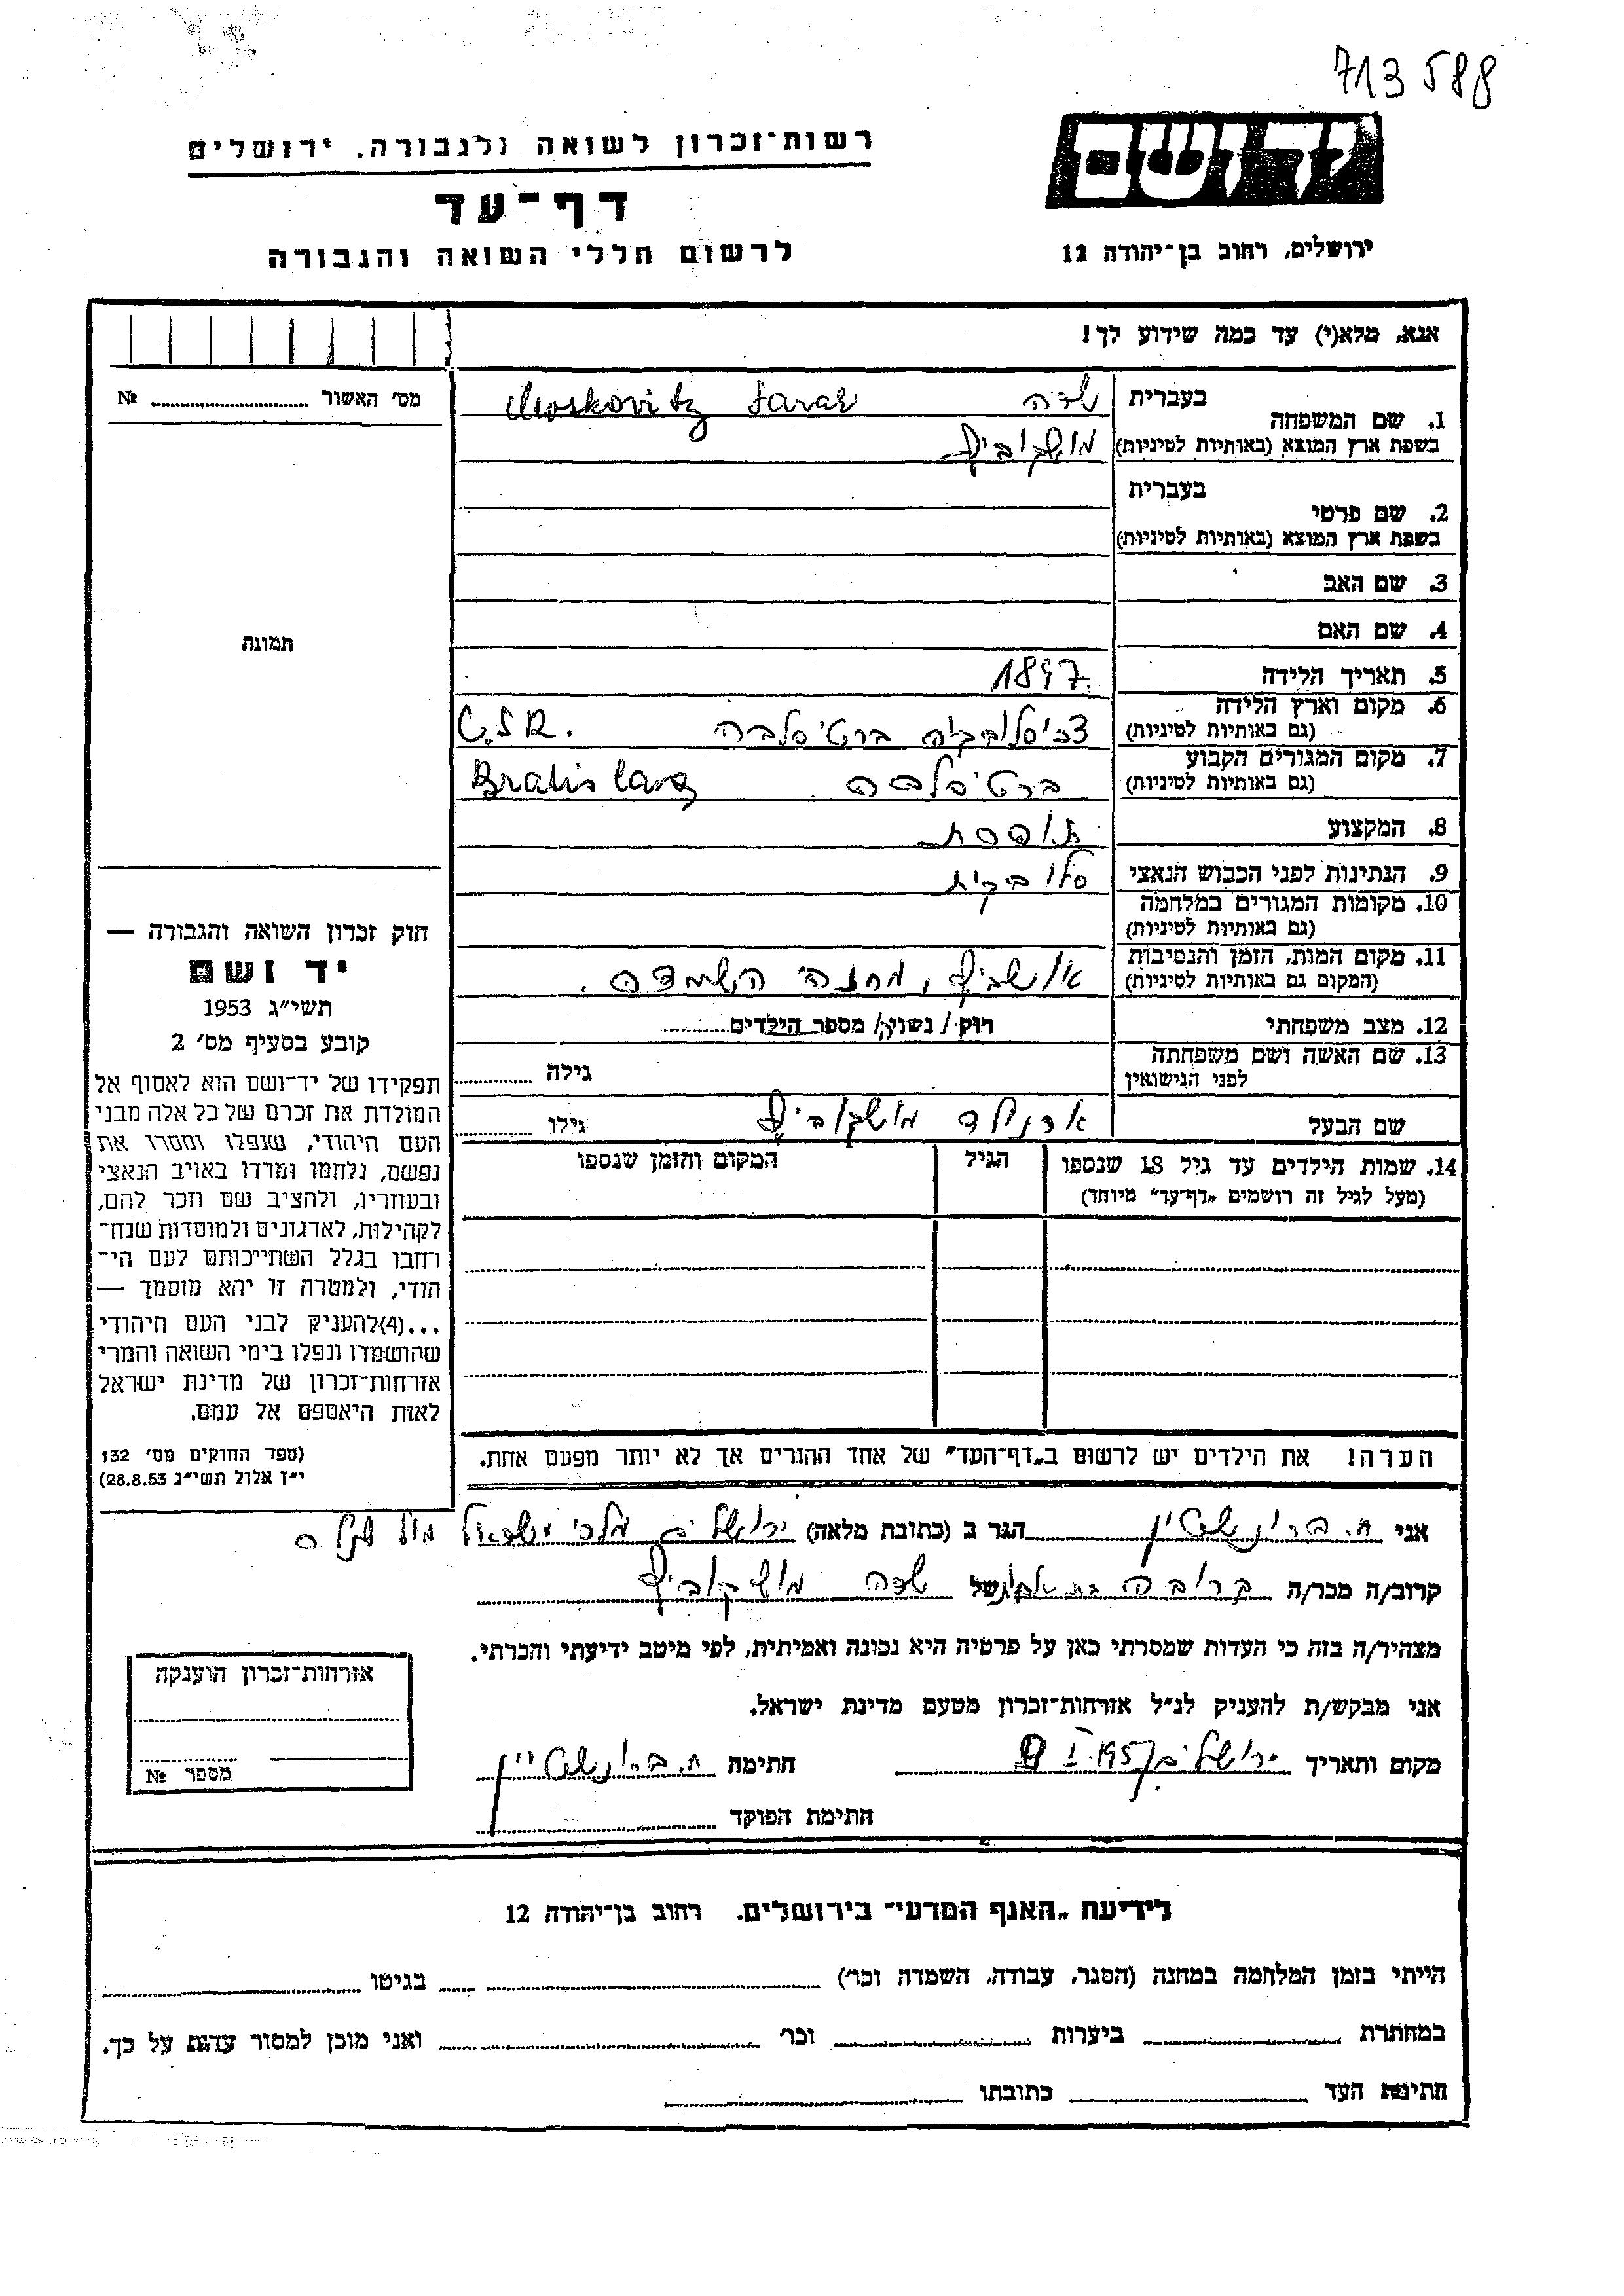 713588
יד ושם
ירושלים, רחוב בן־יהודה 12
רשות־זכרון לשואה ולגבורה, ירושלים
דף־עד
לרשום חללי השואה והגבורה
אנא, מלא(י) עד כמה שידוע לך!
מס׳ האשור № 
תמונה
1. שם המשפחה בעברית שרה Moskovitz Sarah
בשפת ארץ המוצא (באותיות לטיניות) מושקוביץ
2. שם פרטי בעברית
בשפת ארץ המוצא (באותיות לטיניות)
3. שם האב
4. שם האם
5. תאריך הלידה 1897
6. מקום וארץ הלידה
(גם באותיות לטיניות) ברטיסלבה C.S.R.
7. מקום המגורים הקבוע
(גם באותיות לטיניות) ברטיסלבה Bratislava
8. המקצוע תופרת
9. הנתינות לפני הכבוש הנאצי סלובקית
10. מקומות המגורים במלחמה
(גם באותיות לטיניות)
11. מקום המות, הזמן והנסיבות
(המקום גם באותיות לטיניות) אושביץ, מחנה השמדה.
12. מצב משפחתי רוק / נשוי / מספר הילדים
13. שם האשה ושם משפחתה
לפני הנישואין גילה
שם הבעל ארנולד מושקוביץ גילו
14. שמות הילדים עד גיל 18 שנספו הגיל המקום והזמן שנספו
(מעל לגיל זה רושמים „דף־עד״ מיוחד)
הערה! את הילדים יש לרשום ב„דף־העד״ של אחד ההורים אך לא יותר מפעם אחת.
חוק זכרון השואה והגבורה —
יד ושם
תשי״ג 1953
קובע בסעיף מס׳ 2
תפקידו של יד־ושם הוא לאסוף אל
המולדת את זכרם של כל אלה מבני
העם היהודי, שנפלו ומסרו את
נפשם, נלחמו ומרדו באויב הנאצי
ובעוזריו, ולהציב שם וזכר להם,
לקהילות, לארגונים ולמוסדות שנח־
רחבו בגלל השתייכותם לעם הי־
הודי, ולמטרה זו יהא מוסמך —
...(4)להעניק לבני העם היהודי
שהושמדו ונפלו בימי השואה והמרי
אזרחות־זכרון של מדינת ישראל
לאות היאספם אל עמם.
(ספר החוקים מס׳ 132
י״ז אלול תשי״ג 28.8.53)
אני ח. ברונשטיין הגר ב (כתובת מלאה) ירושלים מלכי ישראל מול
קרוב/ה מכר/ה קרובה של שרה מושקוביץ
מצהיר/ה בזה כי העדות שמסרתי כאן על פרטיה היא נכונה ואמיתית, לפי מיטב ידיעתי והכרתי.
אני מבקש/ת להעניק לנ״ל אזרחות־זכרון מטעם מדינת ישראל.
מקום ותאריך ירושלים I.1957 חתימה ח. ברונשטיין
חתימת הפוקד
אזרחות־זכרון הוענקה
מספר №
לידיעת „האגף המדעי״ בירושלים. רחוב בן־יהודה 12
הייתי בזמן המלחמה במחנה (הסגר, עבודה, השמדה וכר׳) בגיטו
במחתרת ביערות וכר׳ ואני מוכן למסור עדות על כך.
חתימת העד כתובתו